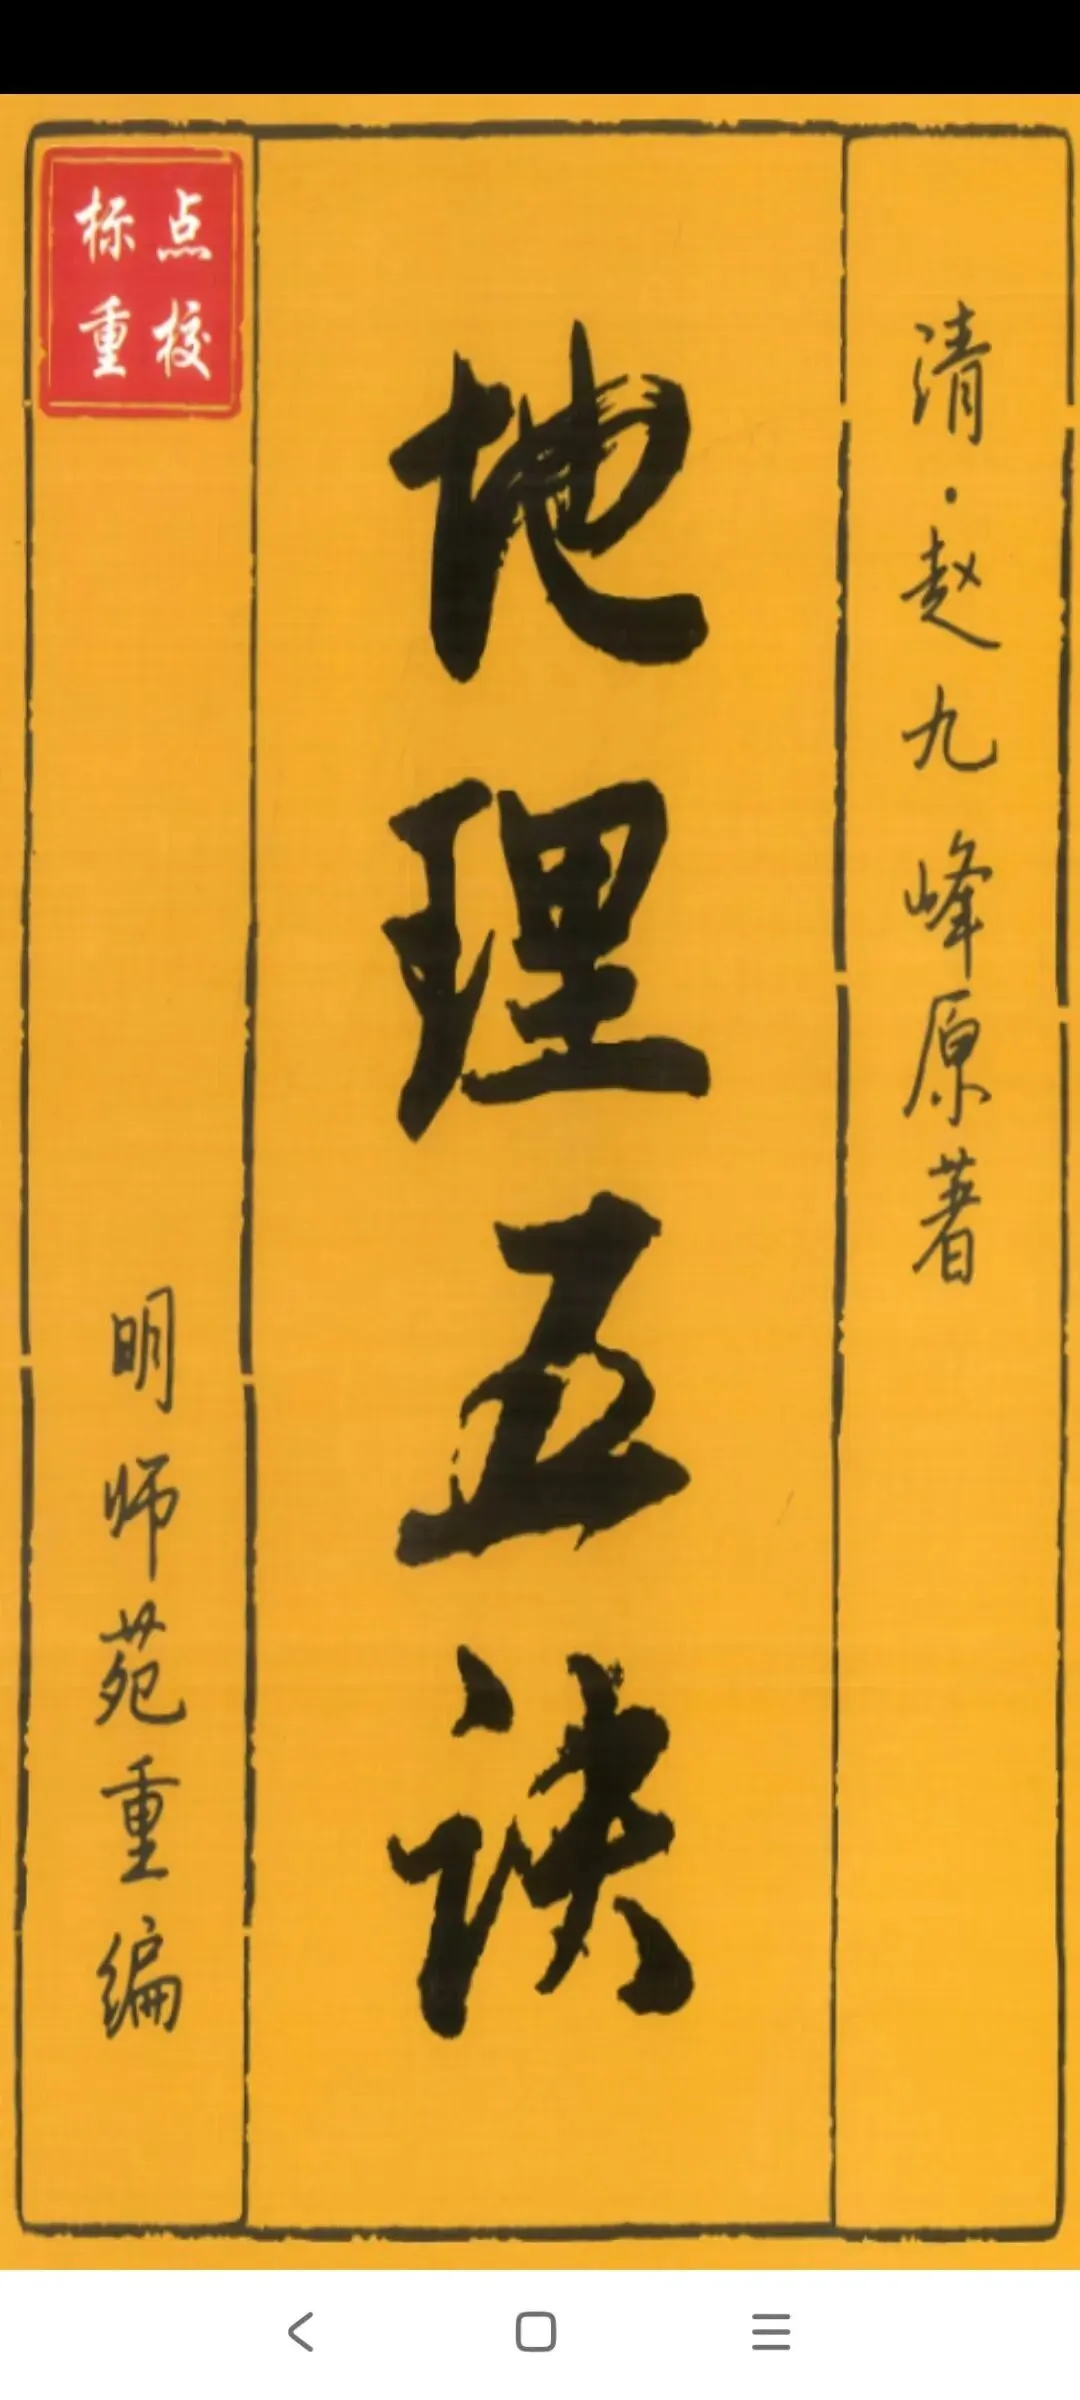 清·赵九峰原著
地理五诀
点校
标重
明师苑重编